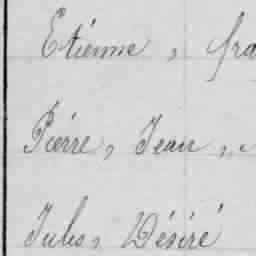 Etiénne, fra
Piérre, Jean,
Jules, Désiré